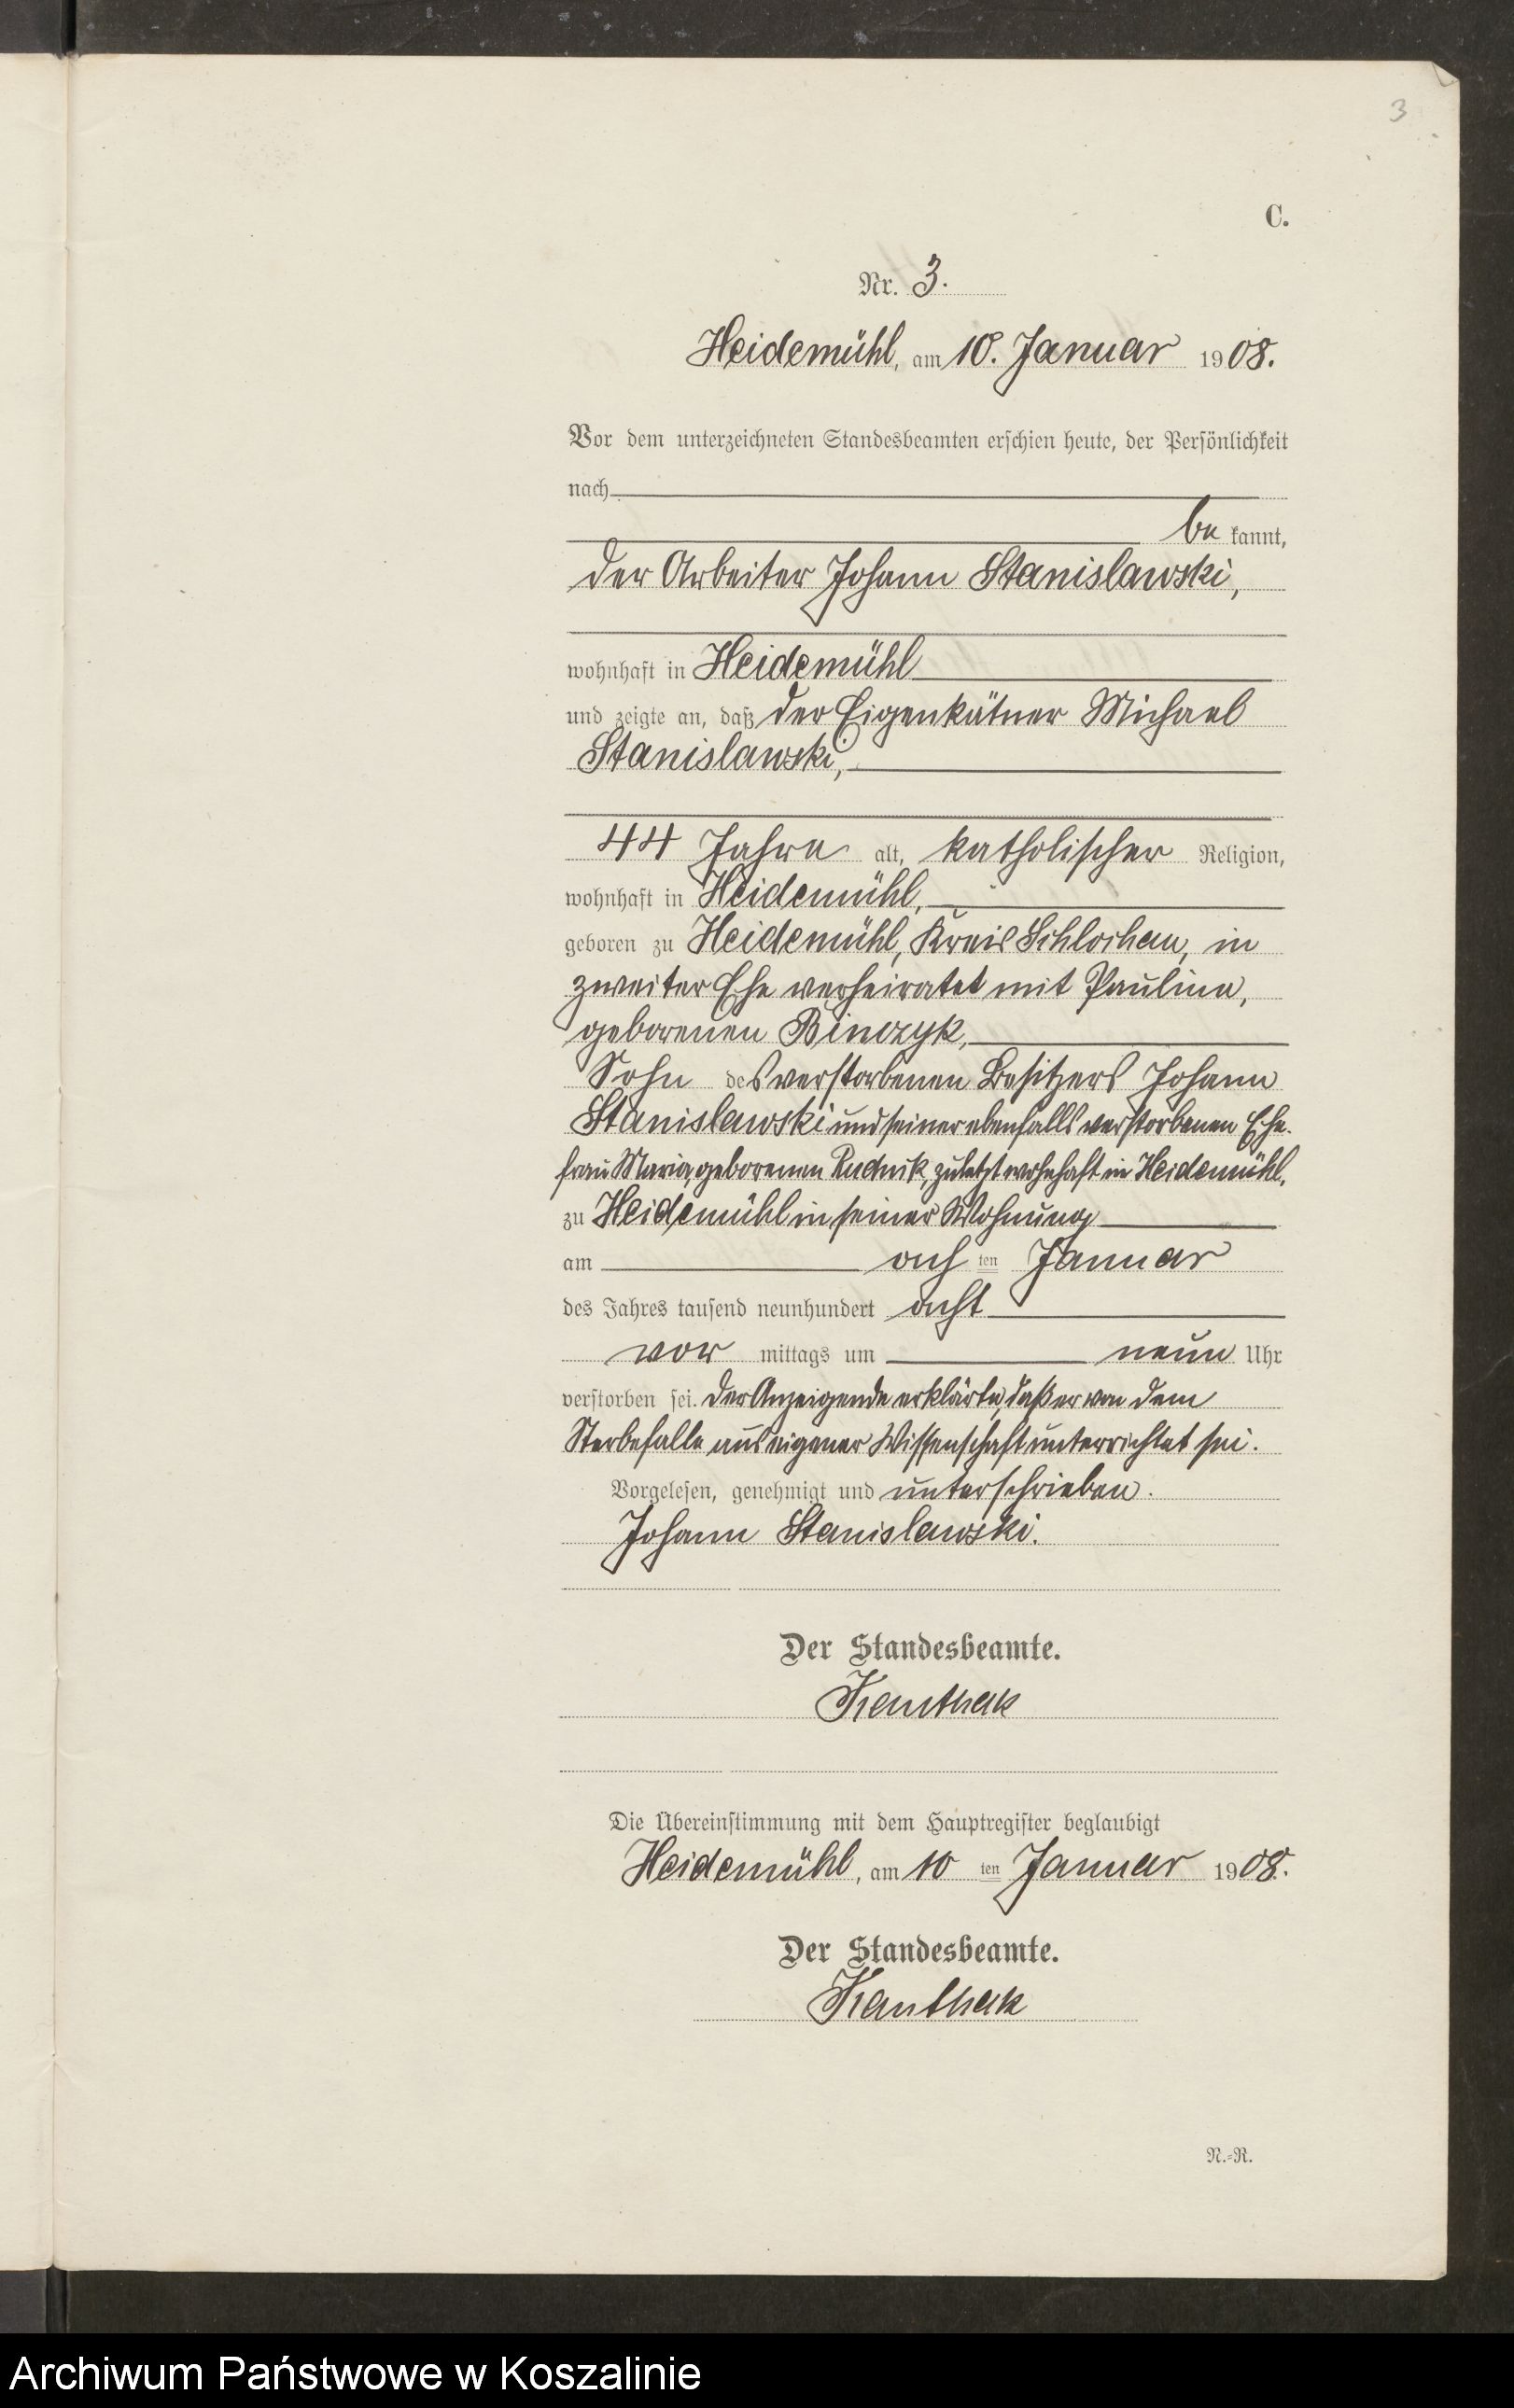 3
C.
Nr. 3.
Heidemühl, am 10. Januar 1908.
Vor dem unterzeichneten Standesbeamten erschien heute, der Persönlichkeit
nach
be kannt,
der Arbeiter Johann Stanislawski,
wohnhaft in Heidemühl
und zeigte an, daß der Eigenkätner Michael
Stanislawski,
44 Jahre alt, katholischer Religion,
wohnhaft in Heidemühl,
geboren zu Heidemühl, Kreis Schlochau, in
zweiter Ehe verheiratet mit Pauline,
geborenen Binczyk,
Sohn des verstorbenen Besitzers Johann
Stanislawski und seiner ebenfalls verstorbenen Ehe-
frau Maria, geborenen Rudnik, zuletzt wohnhaft in Heidemühl,
zu Heidemühl in seiner Wohnung
am acht ten Januar
des Jahres tausend neunhundert acht
vor mittags um neun Uhr
verstorben sei. Der Anzeigende erklärte, daß er von dem
Sterbefalle aus eigener Wissenschaft unterrichtet sei.
Vorgelesen, genehmigt und unterschrieben.
Johann Stanislawski.
Der Standesbeamte.
Kanthak
Die Übereinstimmung mit dem Hauptregister beglaubigt
Heidemühl, am 10 ten Januar 1908.
Der Standesbeamte.
Kanthak
N.-R.
Archiwum Państwowe w Koszalinie